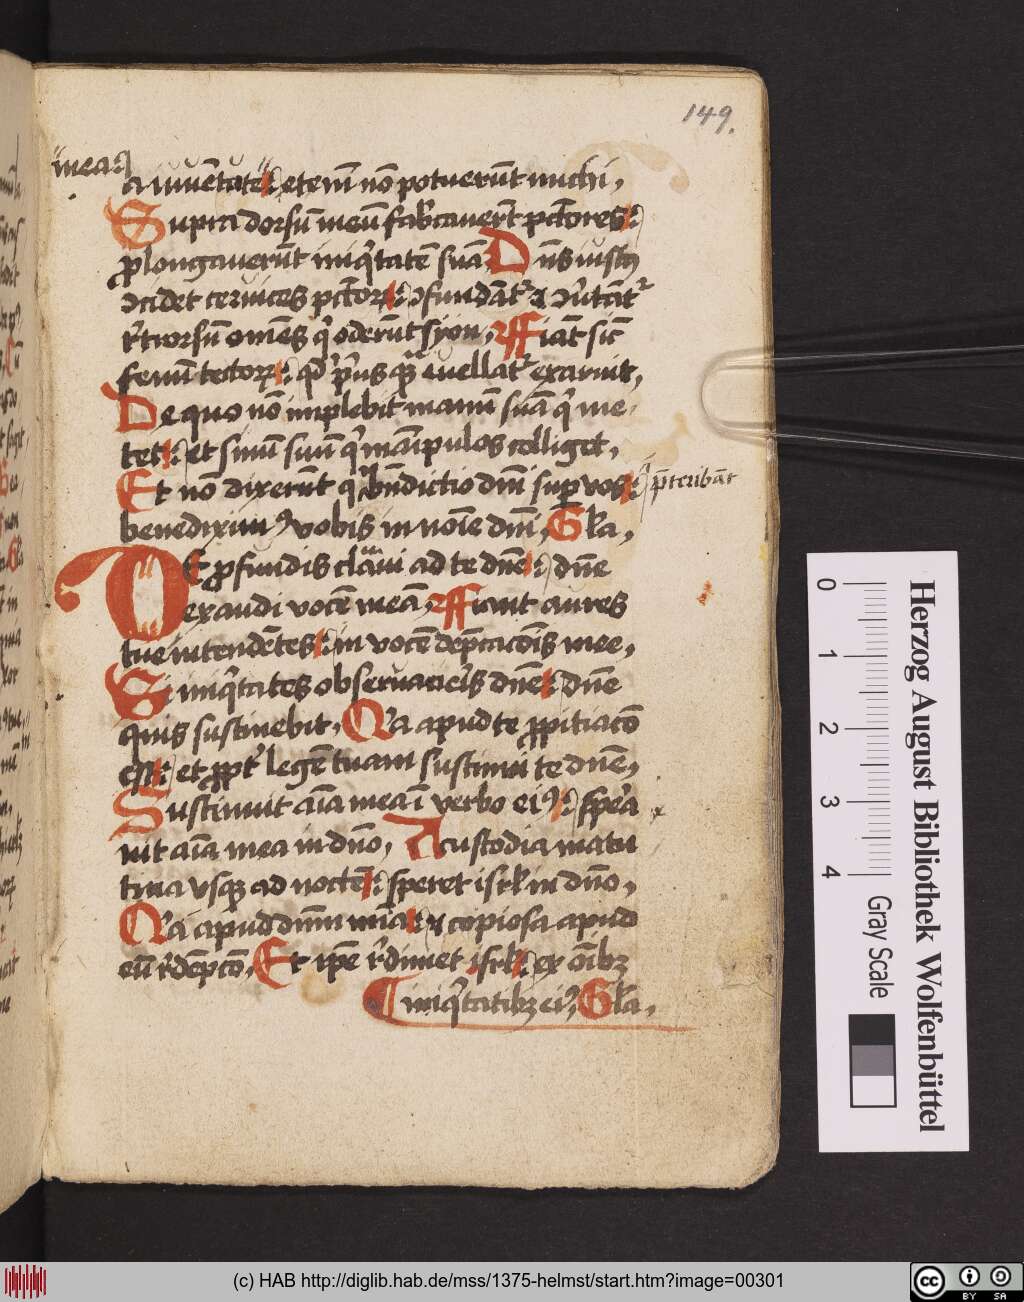 149.
mea
a iuuētute etenī nō potuerūt michi,
Supra dorsū meū fab'cauerūt pctores
ꝓlongauerūt iniq'tatē suā Dn̄s iustꝰ
ꝯcidet ceruices pctoꝝ ꝯfundāt' ꝯu'tāt'
r't'orsū om̄es q' oderūt syon, Ffiāt sic̄
fenū tectoꝝ qd p'usqꝫ euellat' exaruit,
De quo nō implebit manū suā q' me
tet et sinū suū q' manipulos colliget,
Et nō dixerūt q' p̄teribāt
bn̄dictio dn̄i suꝑ vos
benediximꝰ vobis in noīe dn̄i, Gl̄a,
DE ꝓfundis clāui ad te dn̄e dn̄e
exaudi vocē meā, Ffiant aures
tue intendētes in vocē dep̄cacōis mee,
Si iniq'tates obseruaueris dn̄e dn̄e
quis sustinebit, Qr̄a apud te ꝓpitiacō
est et ꝓpt' legē tuam sustinui te dn̄e,
Sustinuit aīa mea ī verbo eiꝰ sp̄era
uit aīa mea in dn̄o, A custodia matu
tina vsqꝫ ad noctē speret isrl̄ in dn̄o,
Qr̄a apud dn̄m mīa copiosa apud
eū r'dēpcō, Et ip̄e r'dimet isrl̄ ex oībꝫ
iniq'tatibꝫ eiꝰ, Gl̄a,
0 1 2 3 4
Herzog August Bibliothek Wolfenbüttel
Gray Scale
(c) HAB http://diglib.hab.de/mss/1375-helmst/start.htm?image=00301
cc BY SA